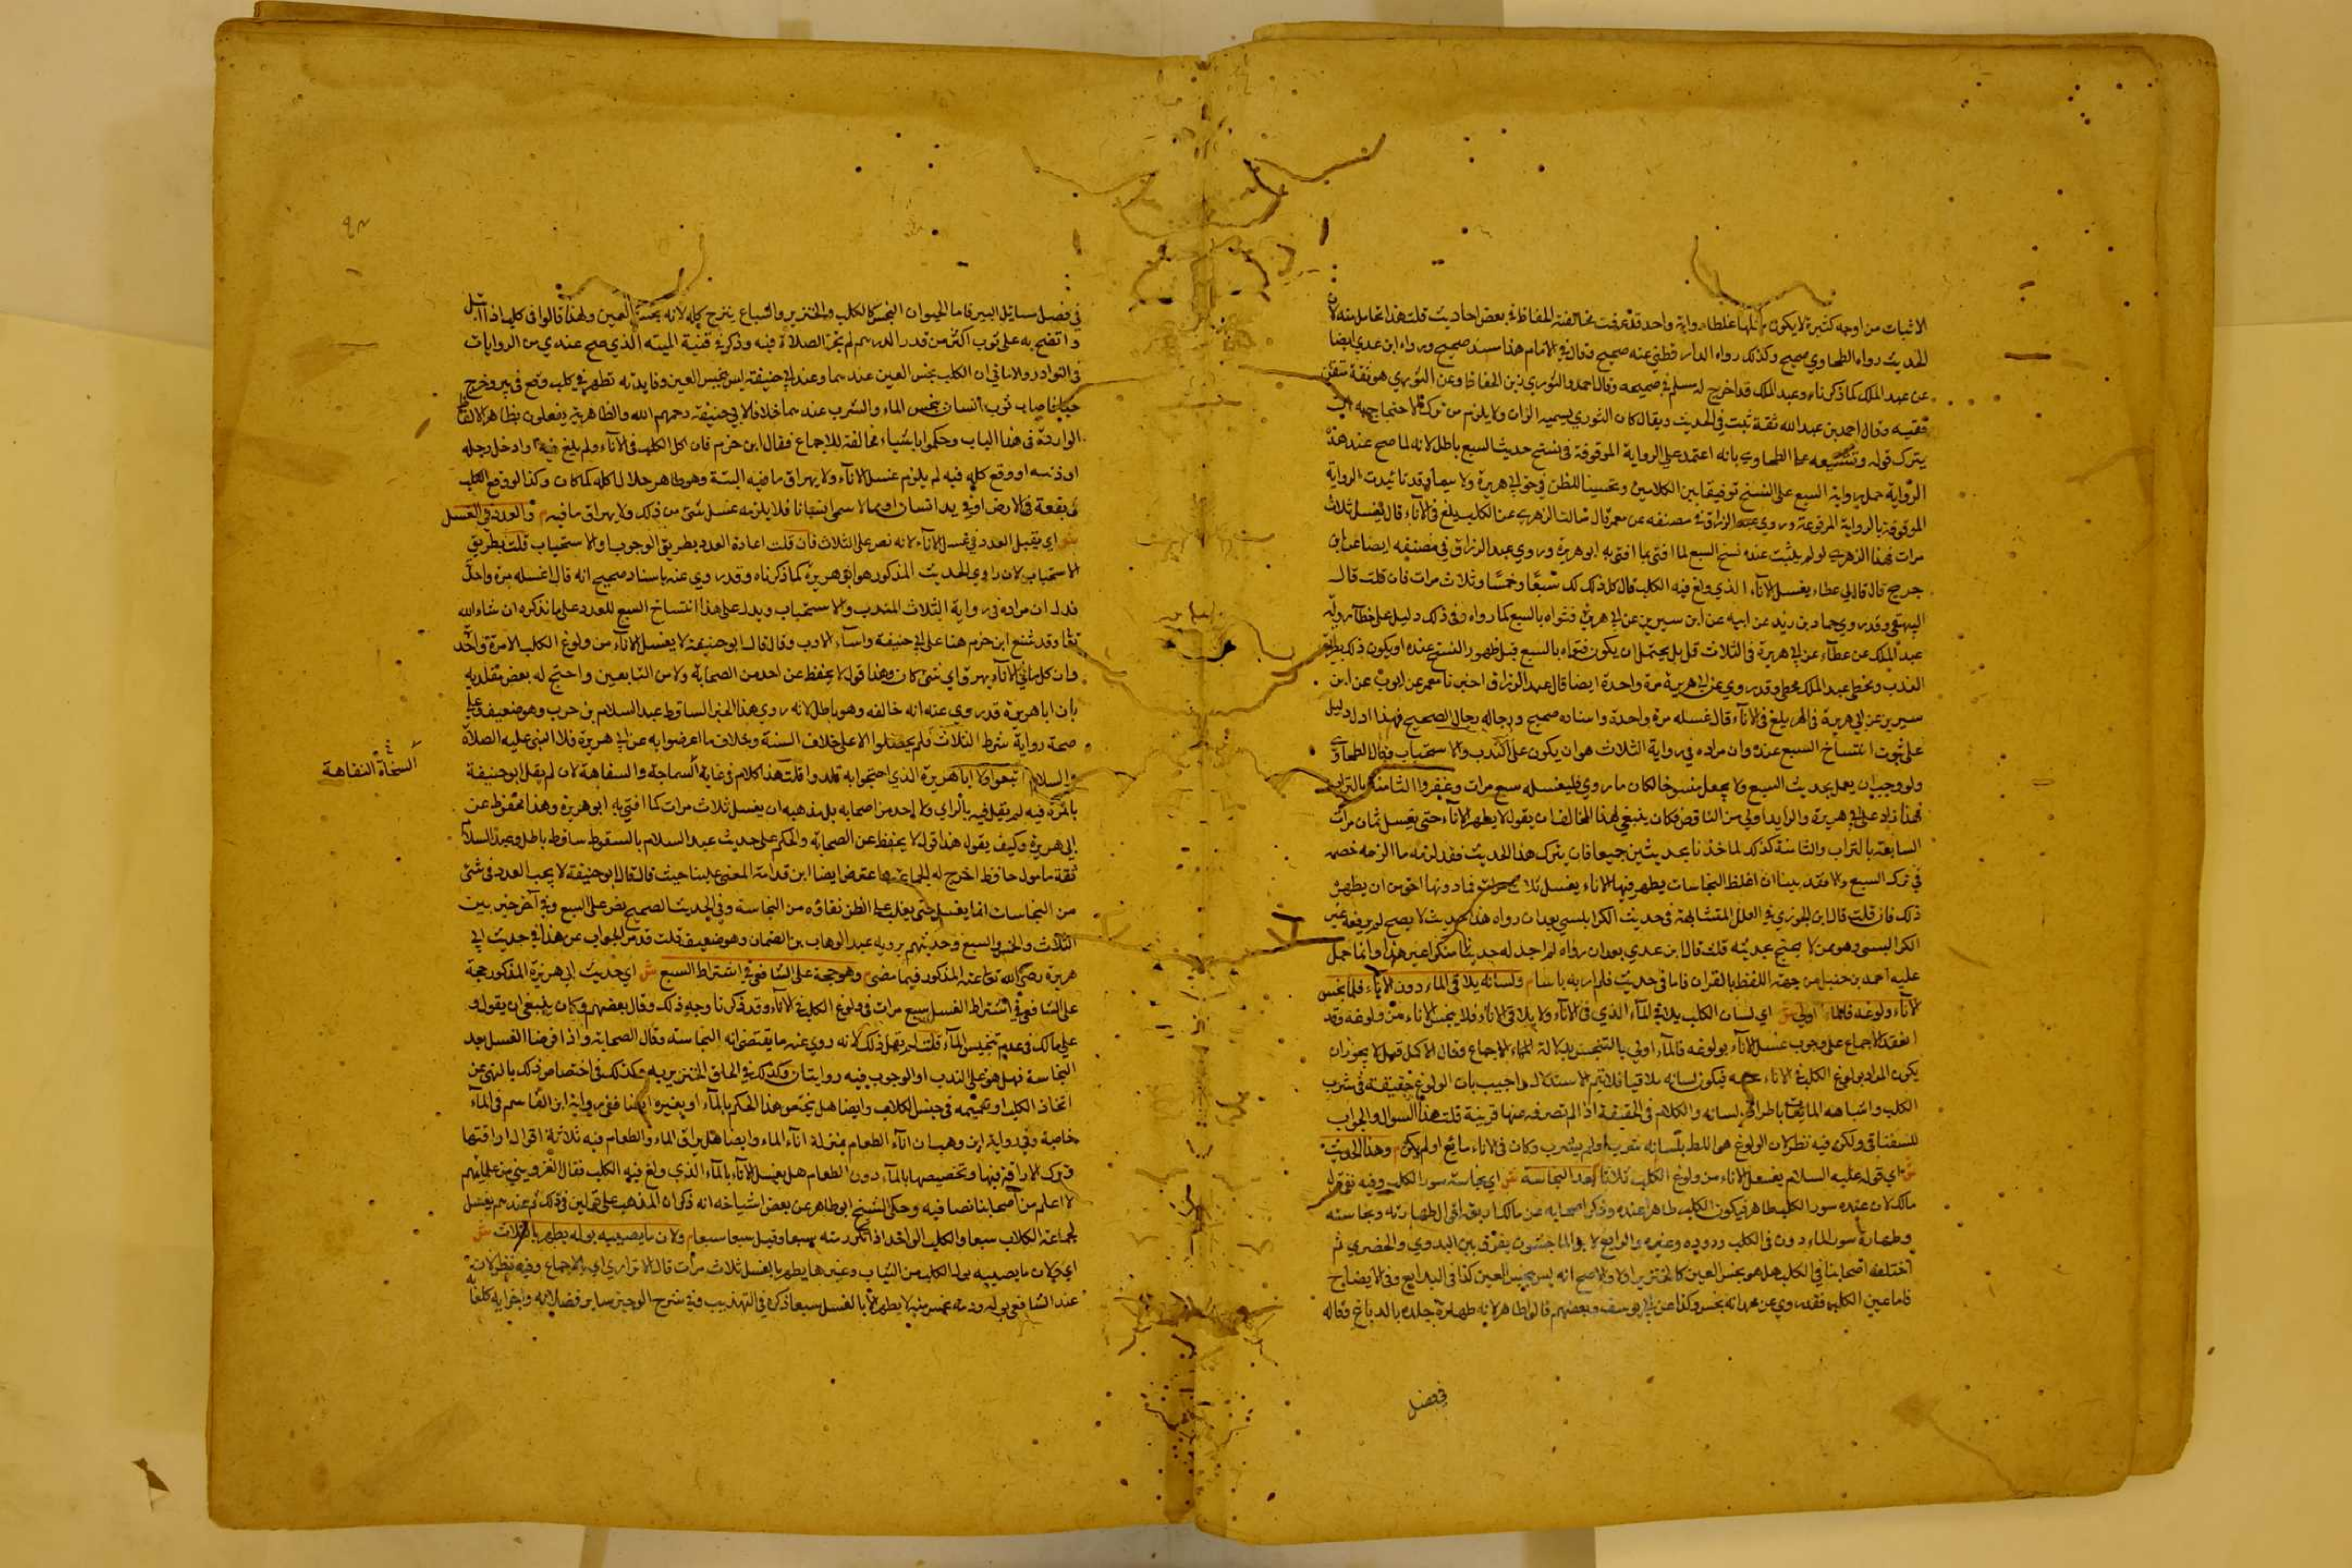 الاثبات من اوجه كثيرة لا يكون كلها غلطا رواية واحد قد عرفت مخالفته الحفاظ في بعض احاديث قلت هذا تحامل منه لان
الحديث رواه الطحاوي صحيح وكذلك رواه الدارقطني عنه صحيح وقال في الامام هذا سند صحيح ورواه ابن عدي ايضا
عن عبد الملك كما ذكرناه وعبد الملك قد اخرج له مسلم في صحيحه وقال احمد والثوري من الحفاظ وعن الثوري هو ثقة متقن
فقيه وقال احمد بن عبد الله ثقة ثبت في الحديث ويقال كان الثوري يسميه الميزان ولا يلزم من ترك الاحتجاج به ان
يترك قوله وتشنيعه على الطحاوي بانه اعتمد على الرواية الموقوفة في نسخ حديث السبع باطل لانه لما صح عنده هذه
الرواية حمل رواية السبع على النسخ توفيقا بين الكلامين وتحسينا للظن في حق ابي هريرة ولا سيما قد تائيدت الرواية
الموقوفة بالرواية المرفوعة وروى عبد الرزاق في مصنفه عن معمر قال سالت الزهري عن الكلب يلغ في الاناء قال يغسل ثلاث
مرات فهذا الزهري لو لم يثبت عنده نسخ السبع لما افتى بما افتى به ابو هريرة وروى عبد الرزاق في مصنفه ايضا عن ابن
جريج قال قال لي عطاء يغسل الاناء الذي ولغ فيه الكلب قال كل ذلك سبعا وخمسا وثلاث مرات فان قلت قال
البيهقي وقد روى حماد بن زيد عن ايوب عن ابن سيرين عن ابي هريرة فتواه بالسبع كما رواه وفي ذلك دليل على خطأ رواية
عبد الملك عن عطاء عن ابي هريرة في الثلاث قلت بل يحتمل ان يكون فتواه بالسبع قبل ظهور النسخ عنده او يكون ذلك بطريق
الندب ومخطي عبد الملك مخطي وقد روي عن ابي هريرة مرة واحدة ايضا قال عبد الرزاق اخبرنا معمر عن ايوب عن ابن
سيرين عن ابي هريرة في الهر يلغ في الاناء قال غسله مرة واحدة واسناده صحيح ورجاله رجال الصحيح فهذا ادل دليل
على ثبوت انتساخ السبع عنده وان مراده في رواية الثلاث هو ان يكون على الندب والاستحباب وقال الطحاوي
ولو وجب ان يعمل بحديث السبع ولا يجعل منسوخا لكان ما روي فليغسله سبع مرات وعفروا الثامنة بالتراب
فهذا زاد على ابي هريرة والزايد اولى من الناقص فكان ينبغي لهذا المخالف ان يقول لا يطهر الاناء حتى يغسل ثمان مرات
السابعة بالتراب والثامنة كذلك لناخذنا بحديثين جميعا فان يترك هذا الحديث فقد لزمه ما الزمه خصمه
في ترك السبع ولا فقد بينا ان اغلظ النجاسات يطهر منها الاناء يغسل ثلاث مرات فما دونها احق من ان يطهره
ذلك فان قلت قال ابن الجوزي في العلل المتشابهة في حديث الكرابيسي بعد ان رواه هذا حديث لا يصح لم يرفعه غير
الكرابيسي وهو ممن لا يحتج بحديثه قلت قال ابن عدي بعد ان رواه لم اجد له حديثا منكرا غير هذا وانما حمل
عليه احمد بن حنبل من جهة اللفظ بالقران فاما في حديث فلم ار به باسا م ولسانه يلاقي الماء دون الاناء فلما تنجس
الاناء ولوغه فالماء اولى ش اي لسان الكلب يلاقي الماء الذي في الاناء ولا يلاقي الاناء فلا ينجس الاناء من ولوغه وقد
انعقد الاجماع على وجوب غسل الاناء بولوغه فالماء اولى بالتنجس بدلالة الاجماع وقال الاكمل قيل لا يجوز ان
يكون المراد بولوغ الكلب في الاناء لحسه فيكون لسانه ملاقيا فلا يتم الاستدلال واجيب بان الولوغ حقيقة في شرب
الكلب واشباهه المائعات باطراف لسانه والكلام في الحقيقة اذا لم تصرف عنها قرينة قلت هذا السوال والجواب
للسغناقي ولكن فيه نظر لان الولوغ هو اللط بلسانه شرب او لم يشرب وكان في الاناء مائع او لم يكن م وهذا الحديث
ش اي قوله عليه السلام يغسل الاناء من ولوغ الكلب ثلاثا يفيد النجاسة ش اي نجاسة سور الكلب وفيه نفي قول
مالك لان عنده سور الكلب طاهر فيكون الكلب طاهرا عنده وذكر اصحابه عن مالك اربعة اقوال طهارته ونجاسته
وطهارة سور الماء دون في الكلب ودوده وغيره والرابع لابن الماجشون يفرق بين البدوي والحضري ثم
اختلف اصحابنا في الكلب هل هو نجس العين كالخنزير اولا والاصح انه ليس بنجس العين كذا في البدايع وفي الايضاح
فاما عين الكلب فقد روي عن محمد انه نجس وكذا عن ابي يوسف وبعضهم قالوا طاهر لانه طهارة جلده بالدباغ وقاله
فصل
في فصل مسائل البير فاما الحيوان النجس كالكلب والخنزير والسباع ينزح كله لانه نجس العين ولهذا قالوا في كلب اذا ابتل
وانتضح به على ثوب اكثر من قدر الدرهم لم تجز الصلاة فيه وذكر في قنية المنية الذي صح عندي من الروايات
في النوادر والامالي ان الكلب نجس العين عندهما وعند ابي حنيفة ليس بنجس العين وفايدته تظهر في كلب وقع في بير وخرج
حيا فاصاب ثوب انسان ينجس الماء والشرب عندهما خلافا لابي حنيفة رحمهم الله والظاهرية يفعلون بظاهر الالفاظ
الواردة في هذا الباب وحكموا باشياء مخالفة للاجماع فقال ابن حزم فان اكل الكلب في الاناء ولم يلغ فيه او ادخل رجله
او ذنبه او وقع كله فيه لم يلزم غسل الاناء ولا يهراق ما فيه البتة وهو طاهر حلال اكله كما كان وكذا لو وقع الكلب
في بقعة في الارض او في يد انسان او ما لا يسمى اناء فلا يلزمه غسل شئ من ذلك ولا يهراق ما فيه م والعدد في الغسل
ش اي يقبل العدد في غسل الاناء لانه نص على الثلاث فان قلت اعادة العدد بطريق الوجوب او الاستحباب قلت بطريق
الاستحباب لان راوي الحديث المذكور هو ابو هريرة كما ذكرناه وقد روي عنه باسناد صحيح انه قال اغسله مرة واحدة
فدل ان مراده في رواية الثلاث الندب والاستحباب ويدل على هذا انتساخ السبع للعدد على ما نذكره ان شاء الله
تعالى وقد شنع ابن حزم هنا على ابي حنيفة واساء الادب وقال قال ابو حنيفة لا يغسل الاناء من ولوغ الكلب الا مرة واحدة
وان كل ما في الاناء يهرق اي شئ كان وهذا قول لا يحفظ عن احد من الصحابة ولا من التابعين واحتج له بعض مقلديه
بان ابا هريرة قد روي عنه انه خالفه وهو باطل لانه روى هذا الخبر الساقط عبد السلام بن حرب وهو ضعيف وعلى
صحة رواية شرط الثلاث فلم يحصلوا الا على خلاف السنة وبخلاف ما اعترضوا به عن ابي هريرة فلا النبي عليه الصلاة
والسلام اتبعوا ولا ابا هريرة الذي احتجوا به قلدوا قلت هذا كلام في غاية السماجة والسفاهة لان لم يقل ابو حنيفة
السخافة النفاهة
بالمرة فيه لم يقل فيه بالراي ولا احد من اصحابه بل مذهبه ان يغسل ثلاث مرات كما افتى به ابو هريرة وهذا محفوظ عن
ابي هريرة وكيف يقول هذا قول لا يحفظ عن الصحابة والحكم على حديث عبد السلام بالسقوط ساقط باطل وعبد السلام
ثقة مامون حافظ اخرج له الجماعة واعترض ايضا ابن قدامة المغني علينا حيث قال قال ابو حنيفة لا يجب العدد في شئ
من النجاسات انما يغسل حتى يغلب على الظن نقاؤه من النجاسة وفي الحديث الصحيح نص على السبع وفي آخر خير بين
الثلاث والخمس والسبع وحديثهم يرويه عبد الوهاب بن الضحاك وهو ضعيف قلت قد مر الجواب عن هذا في حديث ابي
هريرة رضي الله تعالى عنه المذكور فيما مضى م وهو حجة على الشافعي في اشتراط السبع ش اي حديث ابي هريرة المذكور حجة
على الشافعي في اشتراط الغسل سبع مرات في ولوغ الكلب في الاناء وقد ذكرنا وجه ذلك وقال بعضهم وكان ينبغي ان يقول و
على مالك في عدم تنجيس الماء قلت لم يقل ذلك لانه روي عنه ما يقتضي انه النجاسة وقال الصحابة واذا فرضنا الغسل بعد
النجاسة فهل هو على الندب او الوجوب فيه روايتان وكذلك في الحاق الخنزير به وكذلك في اختصاص ذلك بالنهي عن
اتخاذ الكلب او تعميمه في جنس الكلاب وايضا هل يختص هذا الحكم بالماء او بغيره ايضا ففي رواية ابن القاسم في الماء
خاصة وفي رواية ابن وهب ان اناء الطعام بمنزلة اناء الماء وايضا هل يراق الماء والطعام فيه ثلاثة اقوال اراقتها
وترك الاراقة فيها وتخصيصها بالماء دون الطعام هل يغسل الاناء بالماء الذي ولغ فيه الكلب فقال القزويني من علمائهم
لا اعلم من اصحابنا نصا فيه وحكى الشيخ ابو طاهر عن بعض اشياخه انه ذكر ان المذهب على قولين في ذلك ثم عندهم يغسل
لجماعة الكلاب سبعا والكلب الواحد اذا تكرر منه سبعا وقيل سبعا سبعا م ولان ما يصيبه بوله يطهر بالثلاث ش
اي ولان ما يصيبه بول الكلب من الثياب وغيرها يطهر بالغسل ثلاث مرات قال الاترازي اي بالاجماع وفيه نظر لان
عند الشافعي بوله ودمه نجس منه لا يطهر الا بالغسل سبعا ذكره في التهذيب وفي شرح الوجيز ساير فضلاته واجزايه كلعابه